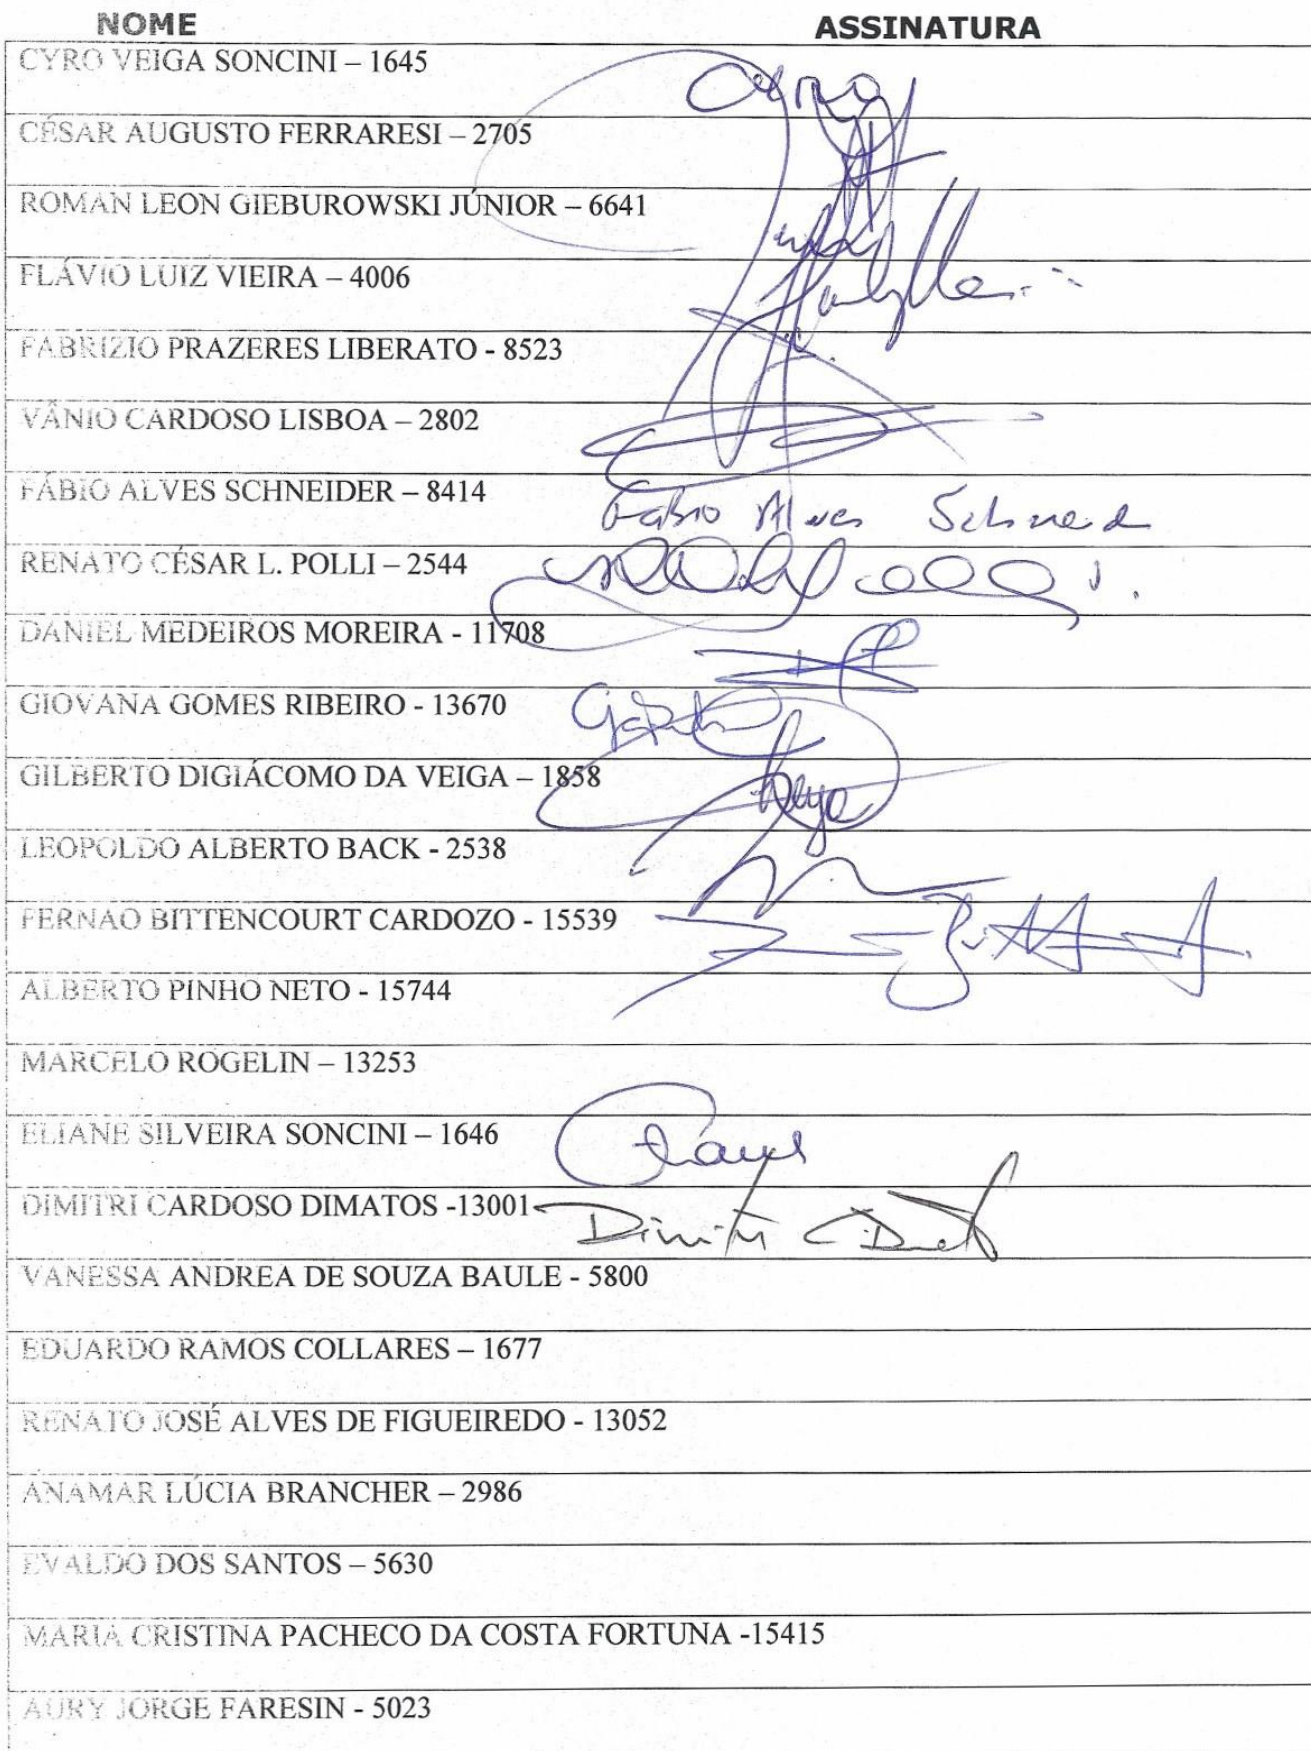 NOME ASSINATURA
CYRO VEIGA SONCINI – 1645
CÉSAR AUGUSTO FERRARESI – 2705
ROMAN LEON GIEBUROWSKI JÚNIOR – 6641
FLÁVIO LUIZ VIEIRA – 4006
FABRIZIO PRAZERES LIBERATO - 8523
VÂNIO CARDOSO LISBOA – 2802
FÁBIO ALVES SCHNEIDER – 8414 Fabio Alves Schneid
RENATO CÉSAR L. POLLI – 2544
DANIEL MEDEIROS MOREIRA - 11708
GIOVANA GOMES RIBEIRO - 13670
GILBERTO DIGIÁCOMO DA VEIGA – 1858
LEOPOLDO ALBERTO BACK - 2538
FERNAO BITTENCOURT CARDOZO - 15539
ALBERTO PINHO NETO - 15744
MARCELO ROGELIN – 13253
ELIANE SILVEIRA SONCINI – 1646
DIMITRI CARDOSO DIMATOS -13001
VANESSA ANDREA DE SOUZA BAULE - 5800
EDUARDO RAMOS COLLARES – 1677
RENATO JOSÉ ALVES DE FIGUEIREDO - 13052
ANAMAR LÚCIA BRANCHER – 2986
EVALDO DOS SANTOS – 5630
MARIA CRISTINA PACHECO DA COSTA FORTUNA -15415
AURY JORGE FARESIN - 5023